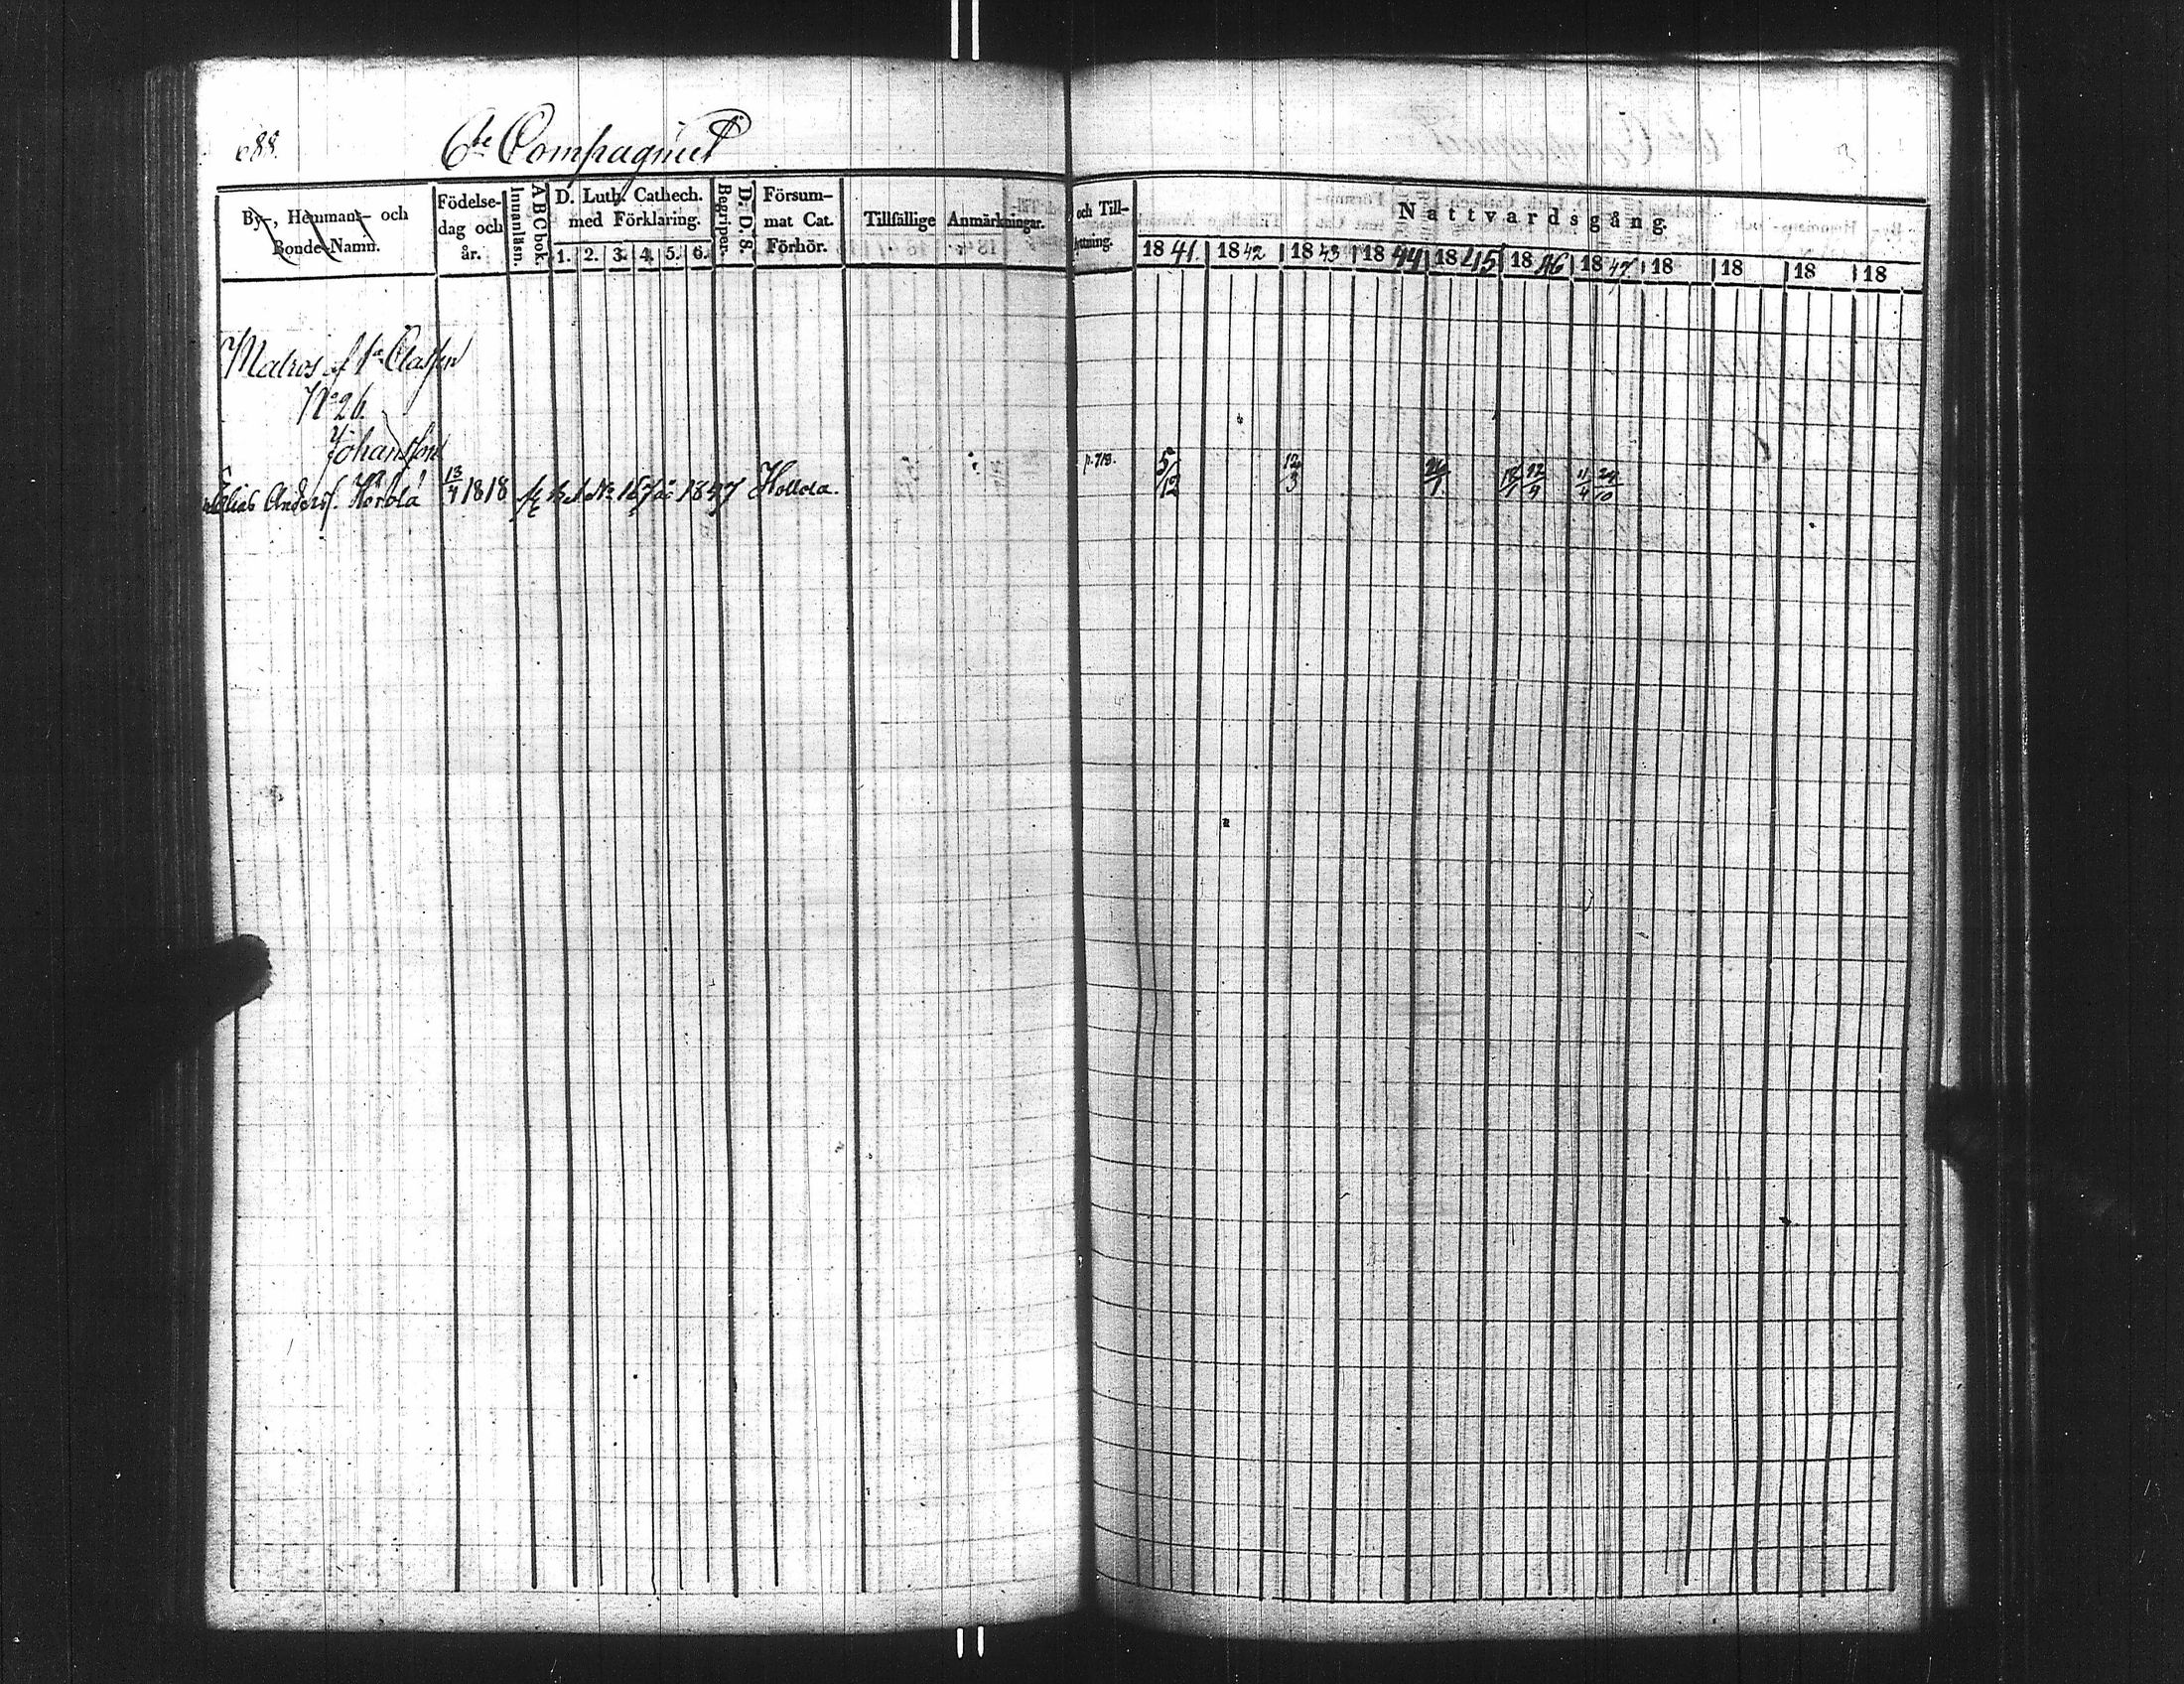 688.
6te Compagniet
By-, Hemmans- och
Bonde-Namn.
Födelse-
dag och
år.
Innanläsn.
ABC bok.
D. Luth. Cathech.
med Förklaring.
1. 2. 3. 4. 5. 6.
Begriper.
D. D. S.
Försum-
mat Cat.
Förhör.
Tillfällige Anmärkningar.
och Till-
Nattvardsgång.
1841. 1842 1843 1844 1845 1846 1847 18 18 18 18
Matros af 1a Classen
No 26.
Johansson
Elias Anders. Hörölä 13/4 1818 1847 Hollola. p. 713. 5/12 12/3 12/9 11/4 24/10